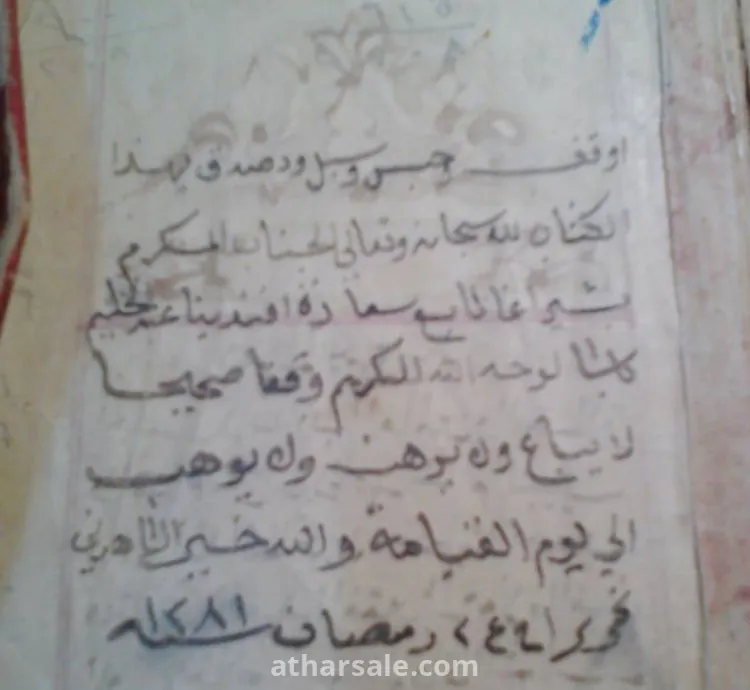 اوقف وحبس وسبل وتصدق بهذا
الكتاب لله سبحانه وتعالى الجناب المكرم
بشير اغا تابع سعادة افندينا عبد الحليم
باشا لوجه الله الكريم وقفا صحيحا
لا يباع ولا يرهن ولا يوهب
الي يوم القيامة والله خير
في ٢ رمضان سنه ١٢٨١
atharsale.com